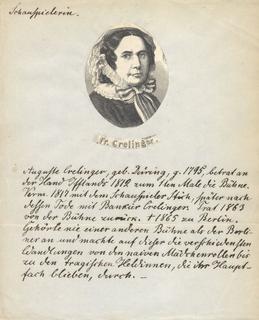 Schauspielerin.
Fr. Crelinger.
Auguste Crelinger, geb. Düring, g. 1795, betrat an
der Hand Ifflands 1812 zum 1ten Male die Bühne.
Verm. 1817 mit dem Schauspieler Stich, später nach
dessen Tode mit Bankier Crelinger. Trat 1863
von der Bühne zurück. † 1865 zu Berlin.
Gehörte nie einer anderen Bühne als der Berli-
ner an und machte auf dieser die verschiedensten
Wandlungen von den naiven Mädchenrollen bis
zu den tragischen Heldinnen, die ihr Haupt-
fach blieben, durch. —